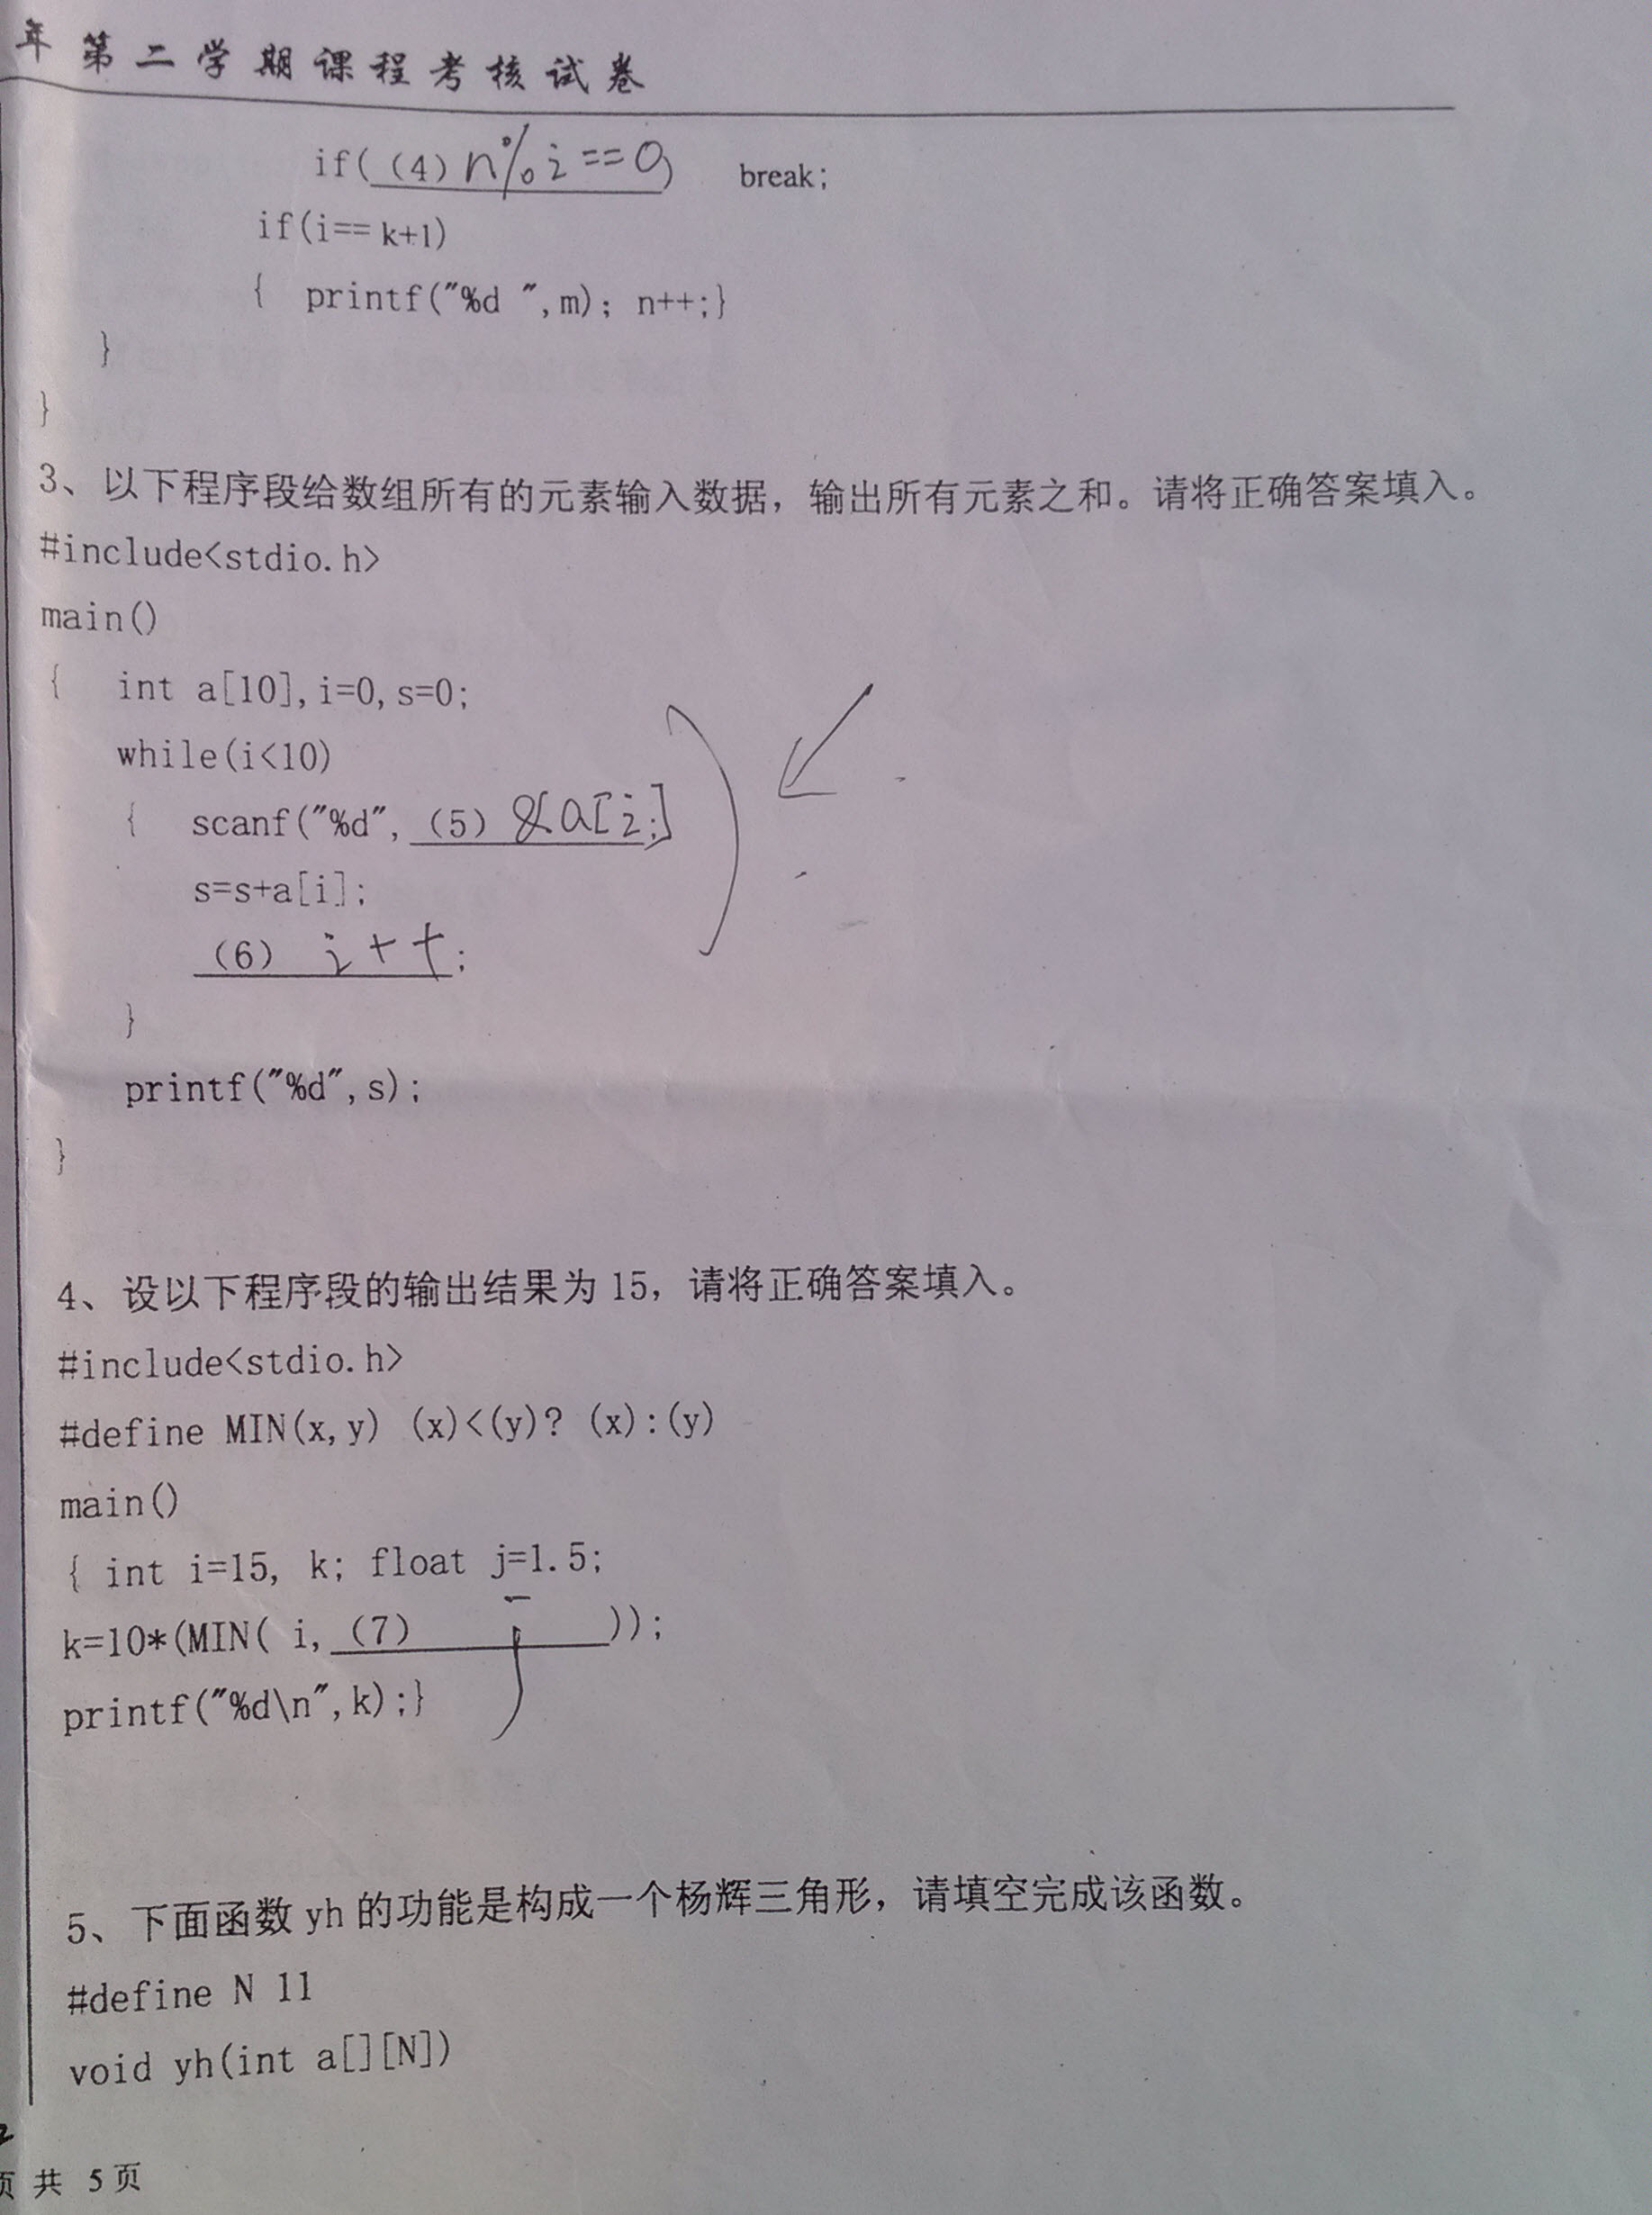 年 第 二 学 期 课 程 考 核 试 卷
if( (4) n%i==0) break;
if(i== k+1)
{ printf("%d ",m); n++;}
}
}
3、以下程序段给数组所有的元素输入数据，输出所有元素之和。请将正确答案填入。
#include<stdio.h>
main()
{ int a[10],i=0,s=0;
while(i<10)
{ scanf("%d", (5) &a[i];
s=s+a[i];
(6) i++;
}
printf("%d",s);
}
4、设以下程序段的输出结果为 15，请将正确答案填入。
#include<stdio.h>
#define MIN(x,y) (x)<(y)? (x):(y)
main()
{ int i=15, k; float j=1.5;
k=10*(MIN( i, (7) j ));
printf("%d\n",k);}
5、下面函数 yh 的功能是构成一个杨辉三角形，请填空完成该函数。
#define N 11
void yh(int a[][N])
页 共 5 页